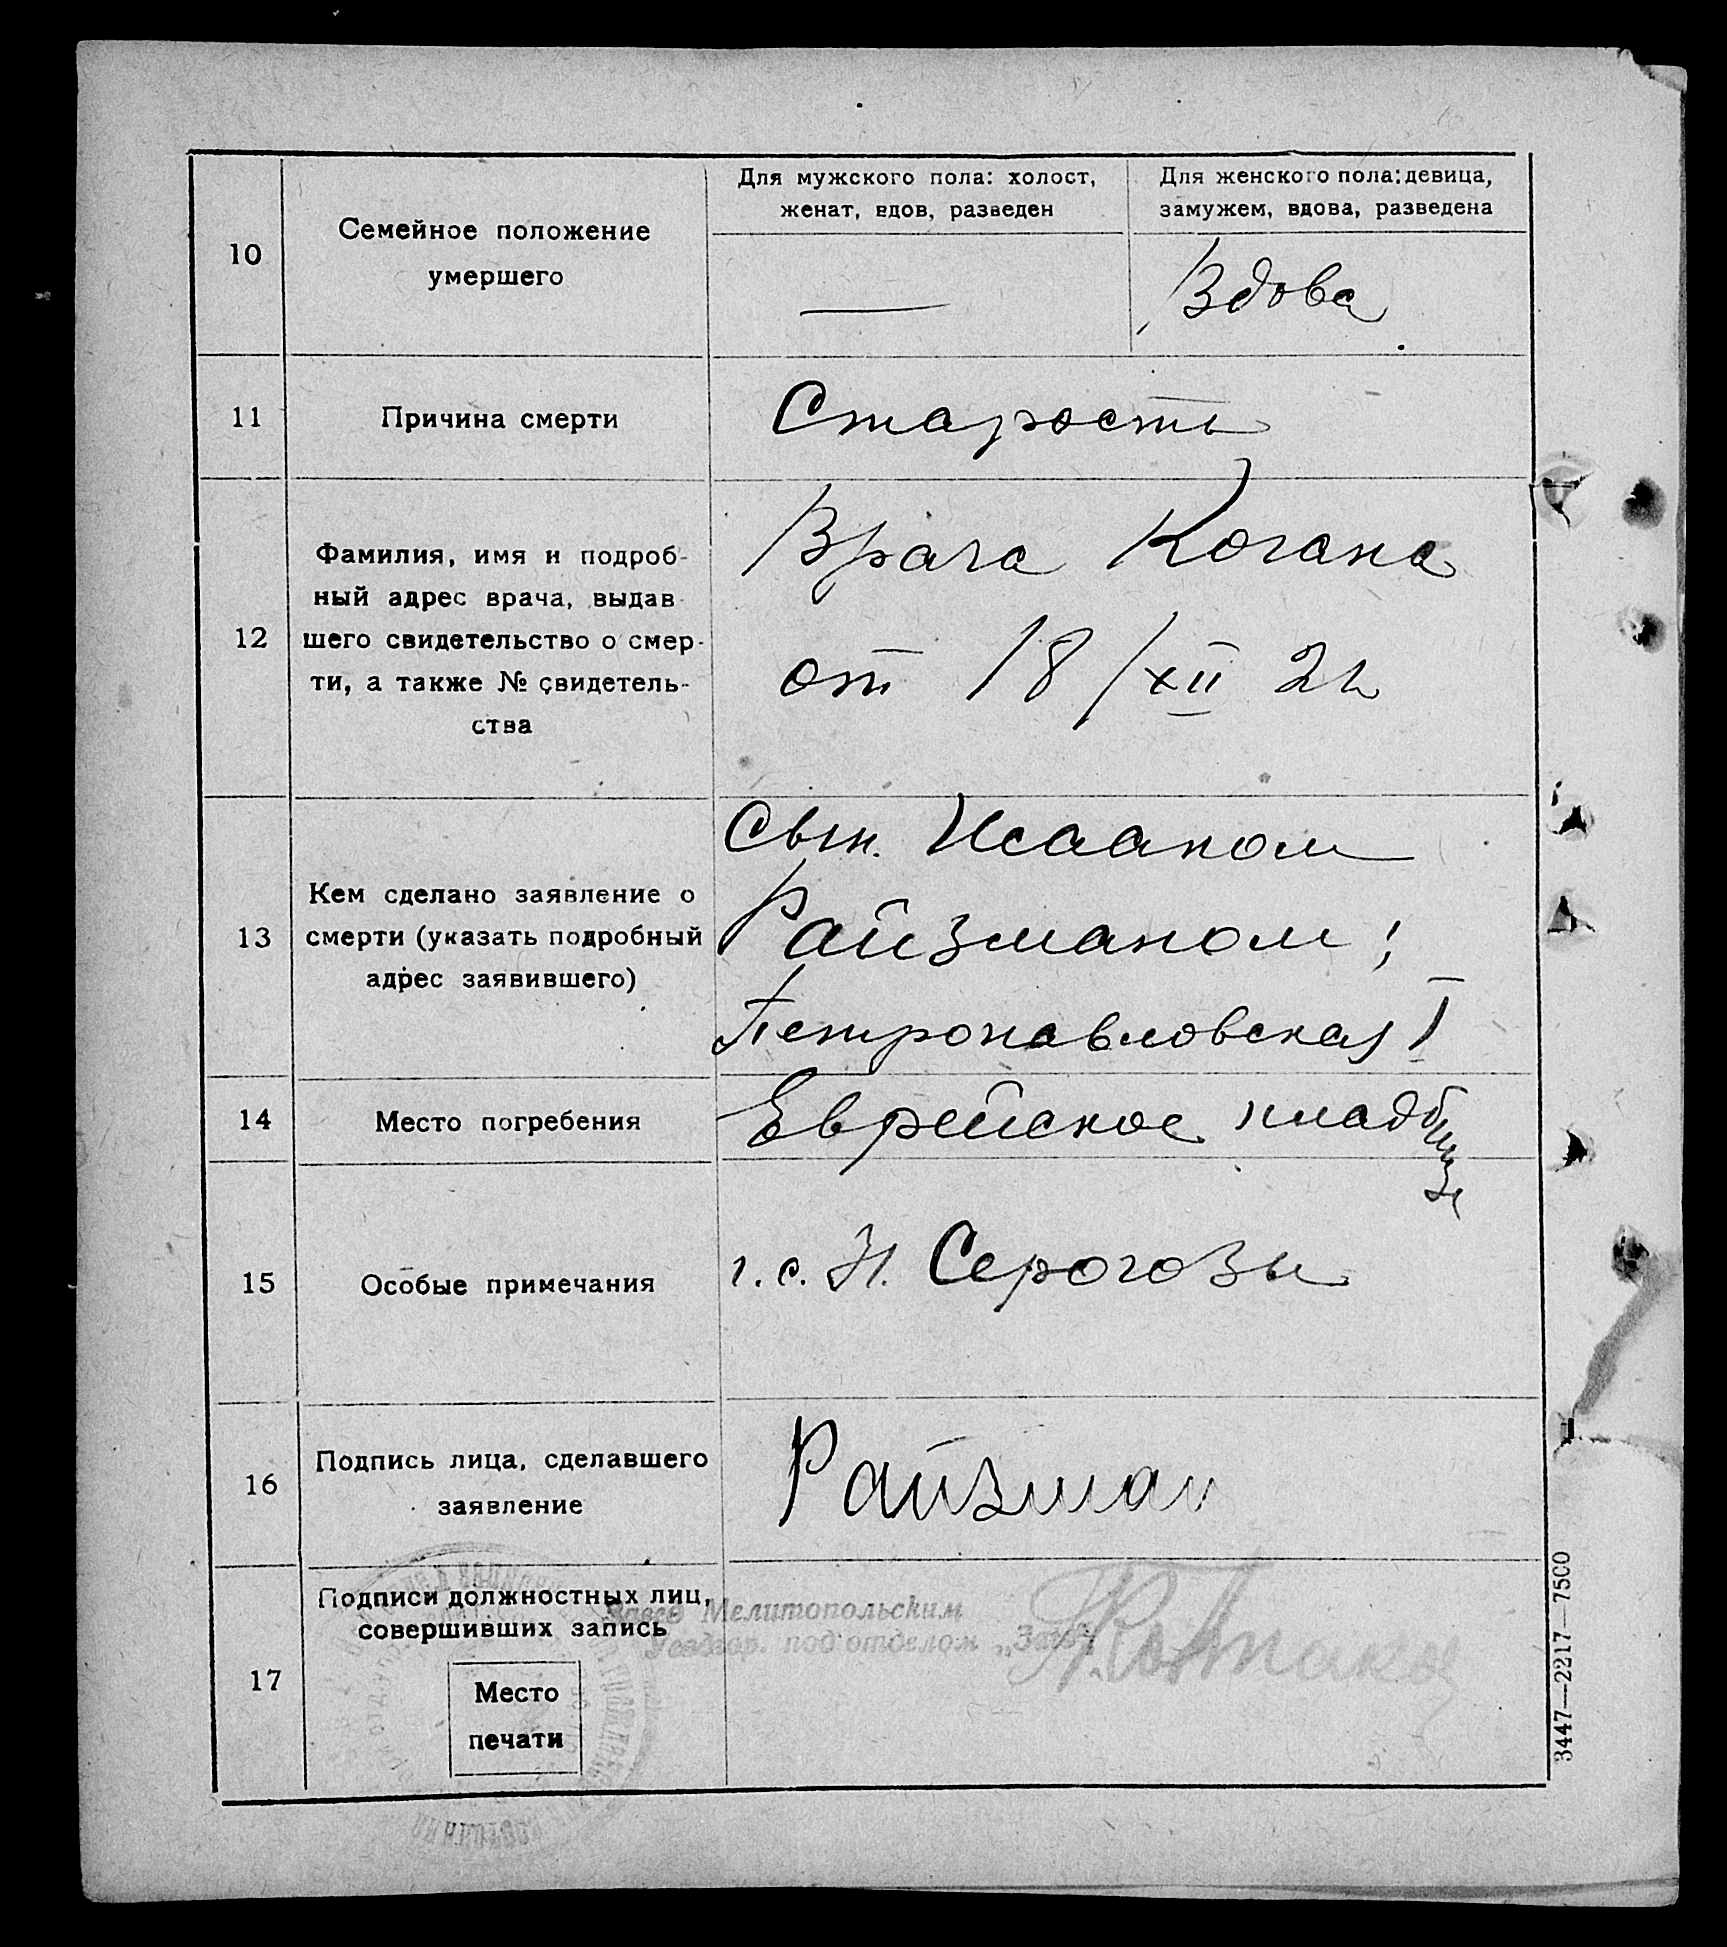 Для мужского пола: холост,
женат, вдов, разведен
Для женского пола: девица,
замужем, вдова, разведена
10
Семейное положение
умершего
—
Вдова
11
Причина смерти
Старость
12
Фамилия, имя и подроб-
ный адрес врача, выдав-
шего свидетельство о смер-
ти, а также № свидетель-
ства
Врача Когана
от 18/XII 2
13
Кем сделано заявление о
смерти (указать подробный
адрес заявившего)
Сын. Исааком
Райзманом;
Петропавловская I
14
Место погребения
Еврейское кладбище
15
Особые примечания
г. с. Н. Серогозы
16
Подпись лица, сделавшего
заявление
Райзман
17
Подписи должностных лиц,
совершивших запись
Место
печати
Завед Мелитопольским
под'отделом „Загс“
3447—2217—7500